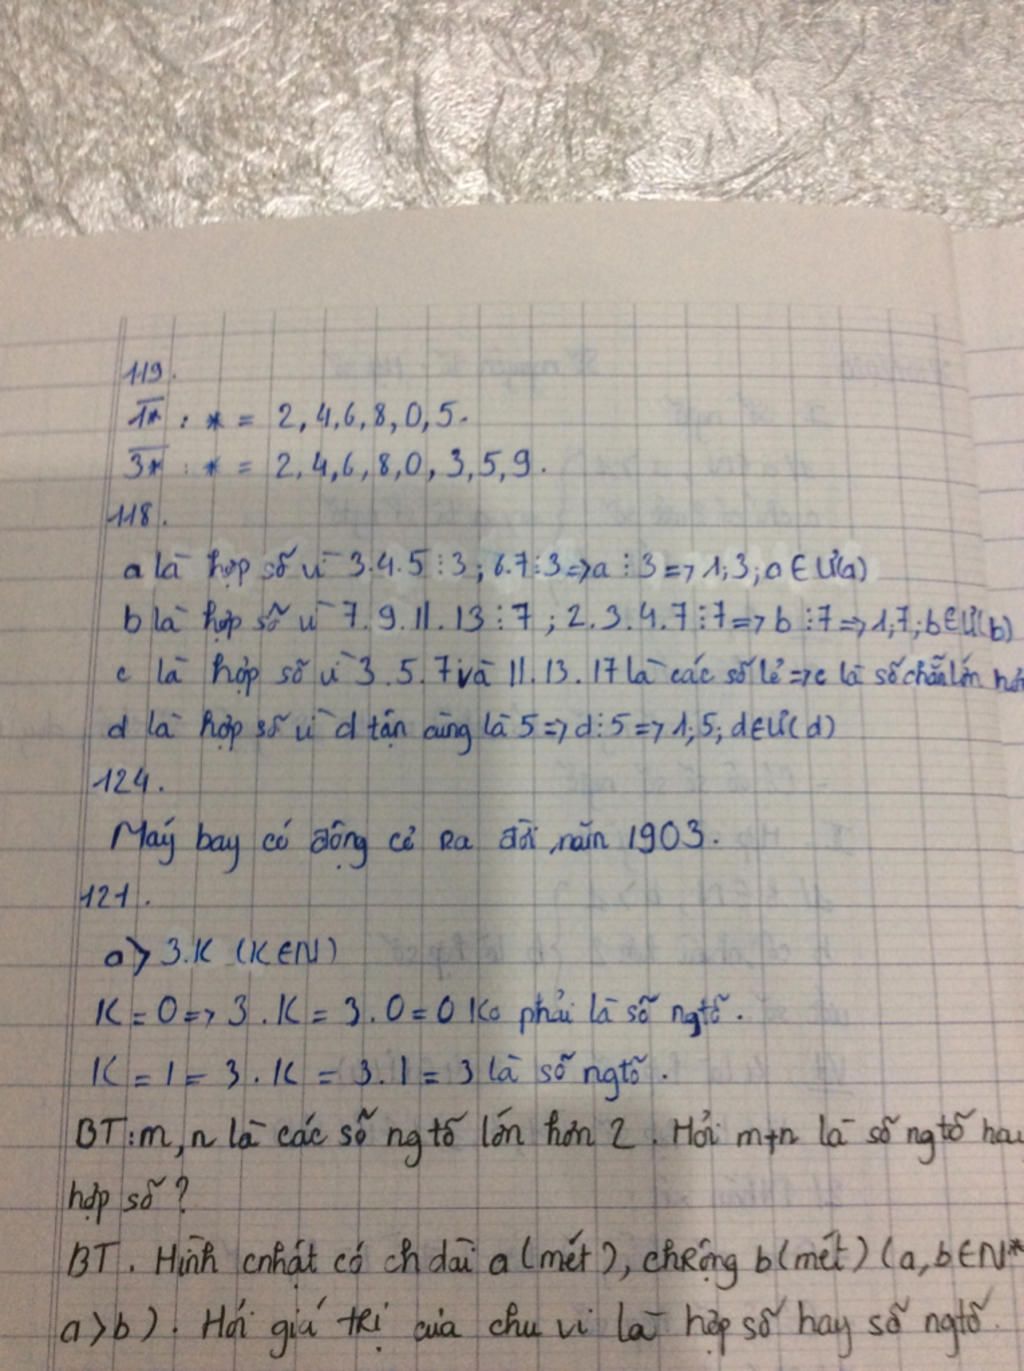 119.
1* : * = 2,4,6,8,0,5.
3* : * = 2,4,6,8,0,3,5,9.
118.
a là hợp số vì 3.4.5⋮3; 6.7⋮3=>a⋮3=>1;3;a∈Ư(a)
b là hợp số vì 7.9.11.13⋮7; 2.3.4.7⋮7=>b⋮7=>1,7;b∈Ư(b)
c là hợp số vì 3.5.7 và 11.13.17 là các số lẻ=>c là số chẵn lớn hơn
d là hợp số vì d tận cùng là 5=>d⋮5=>1;5;d∈Ư(d)
124.
Máy bay có động cơ ra đời năm 1903.
121.
a> 3.K (K∈N)
K=0=>3.K=3.0=0 Ko phải là số ngtố.
K=1=3.K=3.1=3 là số ngtố.
BT:m,n là các số ngtố lớn hơn 2. Hỏi m+n là số ngtố hay
hợp số?
BT. Hình cnhật có ch dài a(mét), chrộng b(mét) (a,b∈N*
a>b). Hỏi giá trị của chu vi là hợp số hay số ngtố.